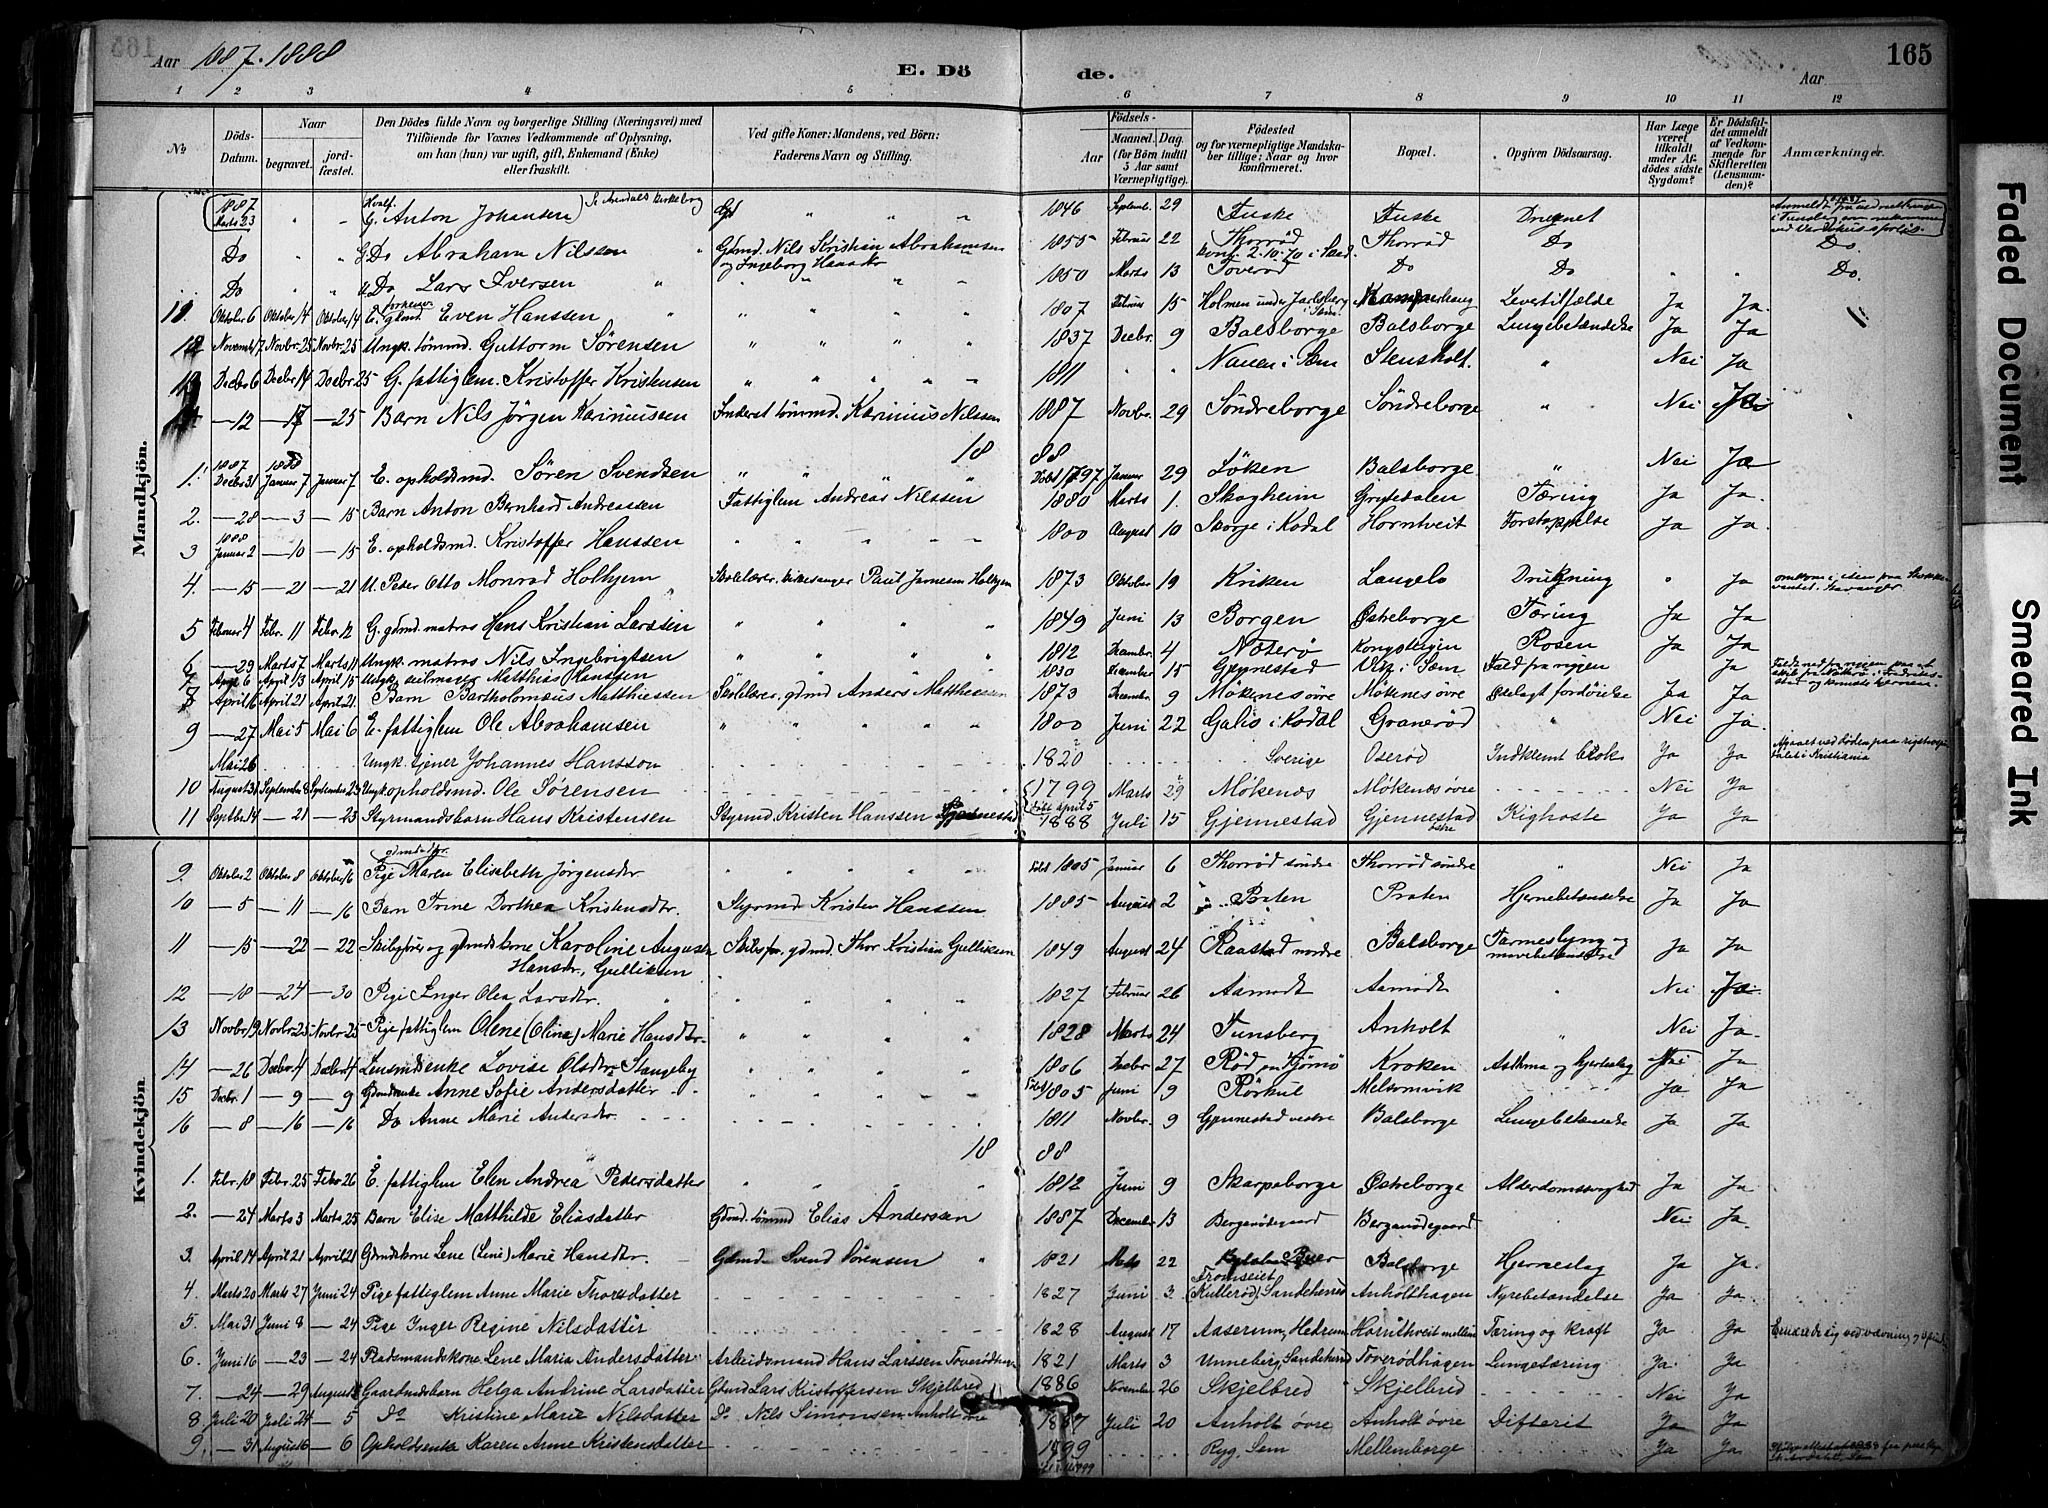 165
Aar 1887-1888
E. Dö de.
Aar
1 2 3 4 5 6 7 8 9 10 11 12
No
Döds-Datum.
Naar begravet. jordfæstet.
Den Dödes fulde Navn og borgerlige Stilling (Næringsvei) med Tilföiende for Voxnes Vedkommende af Oplysning, om han (hun) var ugift, gift, Enkemand (Enke) eller fraskilt.
Ved gifte Koner: Mandens, ved Börn: Faderens Navn og Stilling.
Födsels-
Aar Maaned. Dag. (for Börn indtil 5 Aar samt Værnepligtige).
Födested og for værnepligtige Mandskaber tillige: Naar og hvor konfirmeret.
Bopæl.
Opgiven Dödsaarsag.
Har Læge været tilkaldt under Afdödes sidste Sygdom?
Er Dödsfaldet anmeldt af Vedkommende for Skifteretten (Lensmanden)?
Anmærkninger.
Mandkjön.
1887 Marts 23 Anton Johansen 1846 Septemb. 29 Fuske Fuske Druknet
Do Do Abraham Nilssen Gdmd. Nils Kristian Abrahamsen og Ingeborg 1855 Februar 22 Thorröd konf. 2.10.70 i Thorröd Do Do
Do Do Lars Iversen 1850 Marts 13 Toveröd Do Do Do
Oktober 6 Oktober 14 Oktober 14 E. Even Hanssen 1807 15 Holmen under Jarlsberg Levertilfælde Ja Ja.
Novemb. 17 Novbr. 25 Novbr. 25 Ungk. tömmd. Guttorm Sörensen 1837 Decbr. 9 Balsborge Balsborge Lungebetændelse Ja Ja
Decbr 6 Decbr 14 Decbr 25 G. fattiglem. Kristoffer Kristensen 1811 Nauen i Sem Stensholt. Nei Ja
— 12 — 17 — 25 Barn Nils Jörgen Karinuissen Inderst tömmd. Karinius Nilssen 1887 Novbr. 29 Söndreborge Söndreborge Nei Ja
18 88
1. 1887 Decbr 31 1888 Januar 7 Januar 7 E. opholdsmd. Sören Svendsen 1797 Januar 29 Löken Balsborge Nei Ja
2. — 28 — 3 — 15 Barn Anton Bernhard Andreassen Fattiglem Andreas Nilssen 1880 Marts 1. Skagheim Grytedalen Tæring Ja Ja.
3 1888 Januar 2 — 10 — 15 E. opholdsmd. Kristoffer Hanssen 1800 August 10 Skorge i Kodal Horntveit Forstoppelse Ja Ja.
4. — 15 — 21 — 21 U. Peder Otto Monrad Holhjem Skolelærer, kirkesanger Paul Jamesen Holhjem 1873 Oktober 19 Kriken Langelo Drukning Ja
5 Februar 4 Febr. 11 Febr. 12 G. gdmd. matros Hans Kristian Larssen 1849 Juni 13 Borgen Østreborge Tæring Ja Ja
6 — 29 Marts 7 Marts 11 Ungk. matros Nils Ingebrigtsen 1812 Decembr. 4 Nöterö Kongsteigen Rosen Ja Ja
7 April 6 April 13 April 15 Ungk. seilmager Matthis Hanssen 1830 December 15 Gjennestad Vik i Sem Fald fra rigjen Ja
8 April 16 April 21 April 21 Barn Bartholomæus Matthiessen Skolelærer, gdmd Anders Matthiessen 1873 Decembr. 9 Mökenes övre Mökenes övre Ödelagt fordöielse Ja Ja
9 — 27 Mai 5 Mai 6 E. fattiglem Ole Abrahamsen 1800 Juni 22 Galis i Kodal Graneröd Nei Ja.
Mai 26 Ungk. tjener Johannes Hansson 1820 Sverige Oseröd Indklemt brok Ja Ja
10 August 31 September 8 September 23 Ungk opholdsmd. Ole Sörensen 1799 Marts 29 Mökenæs Mökenæs övre Nei Ja
11 Septbr 14 — 21 — 23 Styrmandsbarn Hans Kristensen Styrmd. Kristen Hanssen Gjennestad 1888 Juli 15 Gjennestad Gjennestad östre Kighoste Ja Ja
Kvindekjön.
9. Oktober 2 Oktober 8 Oktober 16 Pige Maren Elisabeth Jörgensdtr 1805 Januar 6 Thorröd söndre Thorröd söndre Nei Ja
10 — 5 — 11 — 16 Barn Trine Dorthea Kristensdtr. Styrmd Kristen Hanssen 1885 August 2 Praten Praten Hjernebetændelse Ja Ja
11 — 15 — 22 — 22 Skibsförer og gdmdskone Karoline Augusta Hansdtr., Gulliksen Skibsför. gdmd. Thor Kristian Gulliksen 1849 August 24 Raastad nordre Balsborge Tarmeslyng og Ja Ja
12 — 18 — 24 — 30 Pige Inger Olea Larsdtr. 1827 Februar 26 Aamodt Aamodt Nei Ja
13 Novbr 19 Novbr 25 Novbr 25 Pige fattiglem Olene (Olina) Marie Hansdtr. 1828 Marts 24 Tunsberg Anholt Nei Ja.
14 — 26 Decbr 4 Decbr 4 Lensmdsenke Lovise Olsdtr. Stangeby 1806 Decbr 27 Röd paa Tjömö Kroken Asthma og hjerteslag Nei Ja
15 Decbr. 1 — 9 — 9 Gdmdsenke Anne Sofie Andersdatter 1805 Juni 9 Rörkul Melsomvik Ja Ja
16 — 8 — 16 — 16 Do Anne Marie Andersdtr 1811 Novbr. 9 Gjennestad vestre Balsborge Lungebetændelse Ja Ja
18 88
1. Febr. 18 Febr. 25 Febr. 26 E. fattiglem Elen Andrea Pedersdatter 1812 Juni 9 Skarpeborge Østreborge Alderdomssvaghed Ja Ja
2. — 24 Marts 3 Marts 25 Barn Elise Matthilde Eliasdatter Gdmd. tömmd Elias Andersen 1887 December 13 Berganödegaard Berganödegaard Nei Ja.
3. April 14 April 21 April 21 Gdmdskone Lene (Leni) Marie Hansdtr. Gdmd. Svend Sörensen 1821 Marts 22 Buer Balsborge Hjerneslag Ja Ja.
4. Marts 20 Marts 27 Juni 24 Pige fattiglem Anne Marie Thorsdatter 1827 Juni 3 Fromseiet (Kulleröd) Sandeherred Anholthagen Nyrebetændelse Ja Ja.
5. Mai 31 Juni 8 — 24 Pige Inger Regine Nilsdatter 1828 August 17 Aaserum, Hedrum Hornthveit mellem Tæring og kræft Ja Ja
6. Juni 16 — 23 — 24 Pladsmandskone Lene Maria Andersdatter Arbeidsmand Hans Larssen Toverödhagen 1821 Marts 3 Unneberg, Sandeherred Toverödhagen Lungetæring Ja. Ja
7 — 24 — 29 August 5 Gaardmdsbarn Helga Andrine Larsdatter Gdmd Lars Kristoffersen Skjelbred 1886 November 26 Skjelbred Skjelbred Nei Ja
8 Juli 20 Juli 24 — 5 Do Kristine Marie Nilsdatter Do Nils Simonsen Anholt övre 1887 Juli 20 Anholt övre Anholt övre Difterit Ja Ja
9. — 31 August 6 — 6 Opholdsenke Karen Anne Kristensdatter 1799 Ryg, Sem Mellemborge Ja Ja.
Faded Document
Smeared Ink